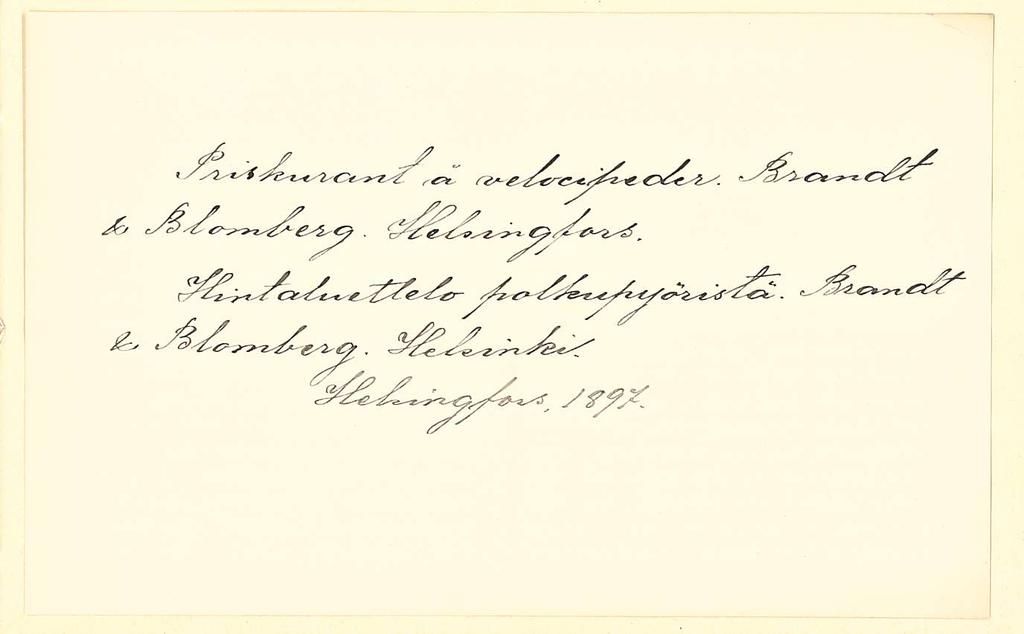 Priskurant å velocipeder. Brandt
& Blomberg. Helsingfors.
Hintaluettelo polkupyöristä. Brandt
& Blomberg. Helsinki.
Helsingfors, 1897.